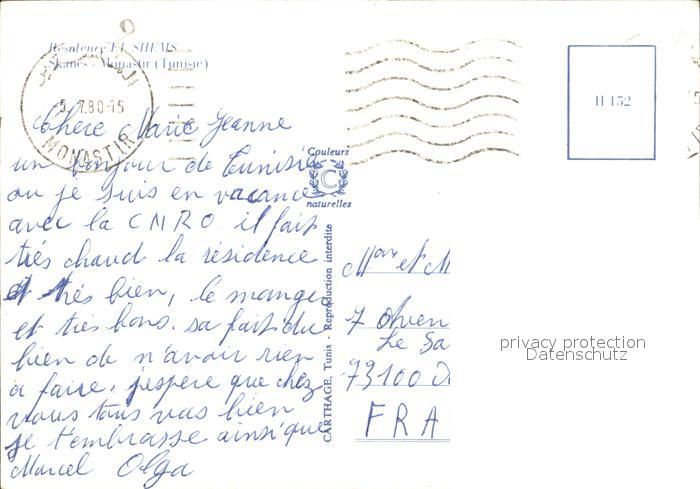 Résidence EL SHEMS
Skanès - Monastir (Tunisie)
5. 7.80-15
MONASTIR
H 152
Chère Marie Jeanne
un bonjour de Tunisie
ou je suis en vacance
avec la CNRO. il fait
très chaud la résidence
et très bien, le manger
et très bons. sa fait du
bien de n'avoir rien
a faire. j'espère que chez
vous tous vas bien
je t'embrasse ainsi que
Marcel Olga
Couleurs
C
naturelles
CARTHAGE, Tunis - Reproduction interdite
et M
7
Le
73100
FRA
privacy protection
Datenschutz